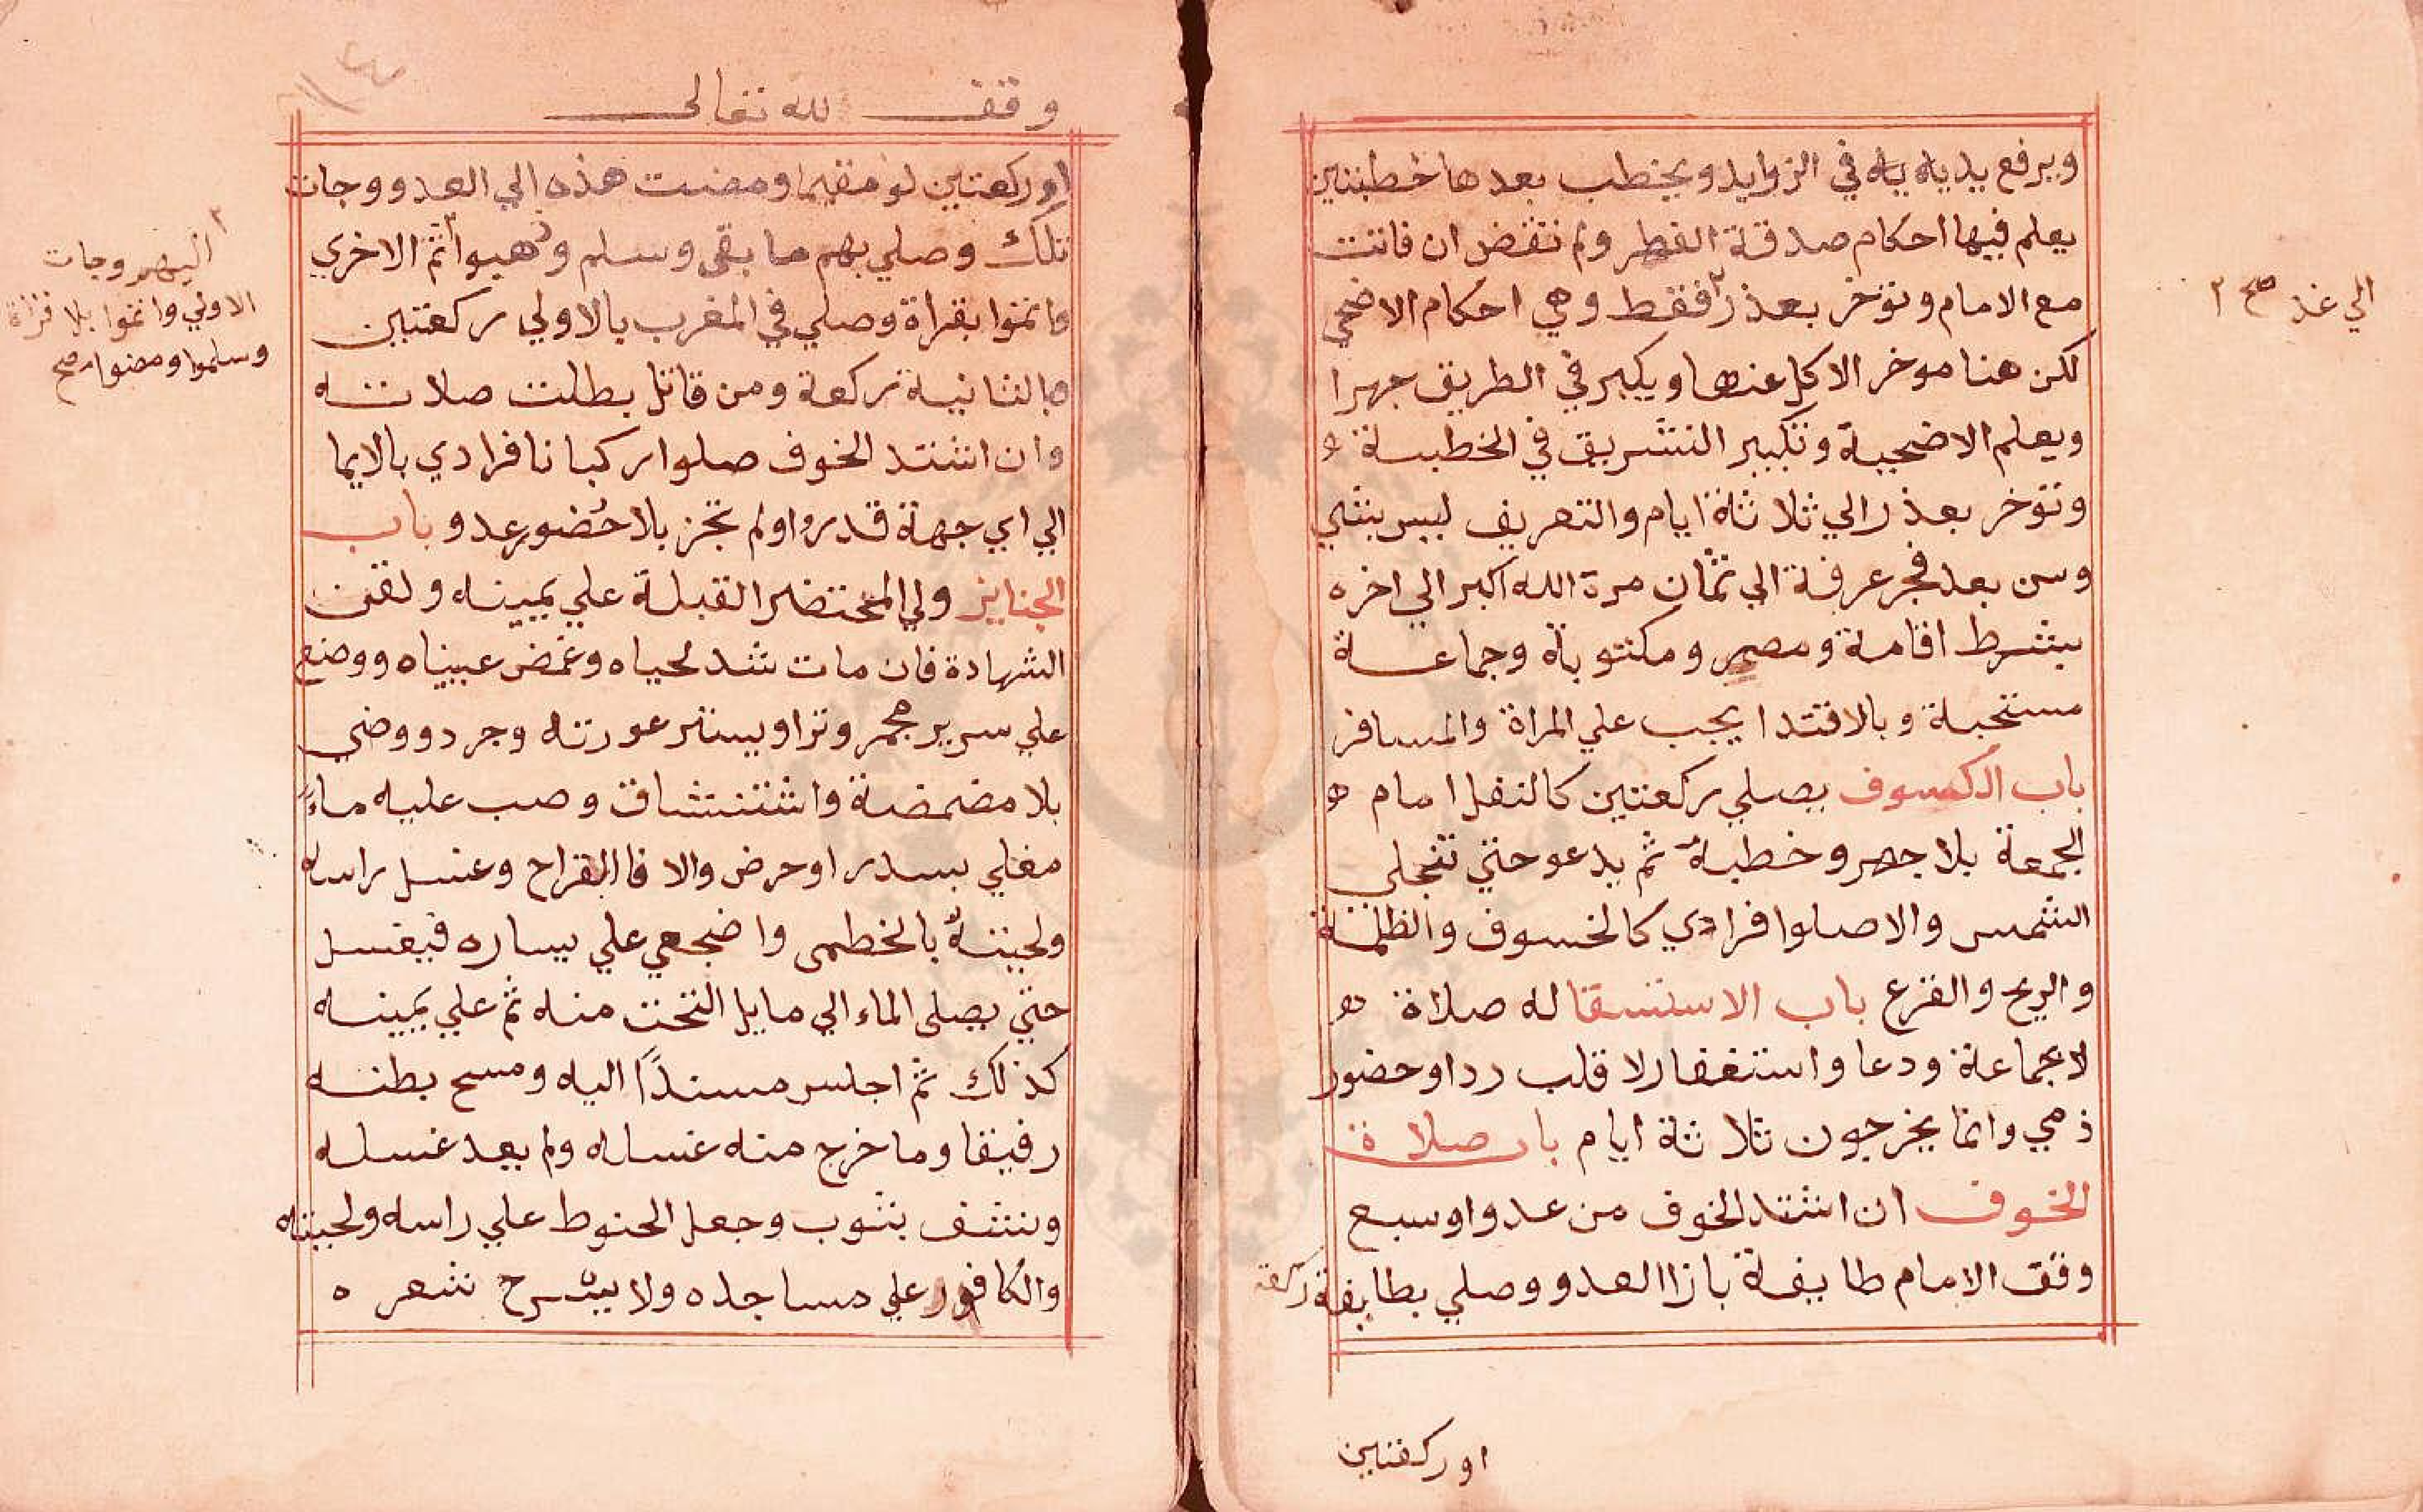 ويرفع يديه في الزوايد ويخطب بعدها خطبتين
يعلم فيها احكام صدقة الفطر ولم تقض ان فاتت
مع الامام وتؤخر بعذر ٢ فقط وهي احكام الاضحي
الي غد صح ٢
لكن هنا موخر الاكل عنها ويكبر في الطريق جهرا
ويعلم الاضحية وتكبير التشريق في الخطبة و
وتؤخر بعذر الي ثلاثة ايام والتعريف ليس بشي
وسن بعد فجر عرفة الي ثمان مرة الله اكبر الي اخره
بشرط اقامة ومصر ومكتوبة وجماعة
مستحبة وبالاقتدا يجب علي المراة والمسافر
باب الكسوف يصلي ركعتين كالنفل امام ه
الجمعة بلا جهر وخطبة ثم يدعو حتي تنجلي
الشمس والا صلوا فرادي كالخسوف والظلمة
والريح والفزع باب الاستسقا له صلاة ه
لا بجماعة ودعا واستغفار لا قلب ردا وحضور
ذمي وانما يخرجون ثلاثة ايام باب صلاة
الخوف ان اشتد الخوف من عدو او سبع
وقف الامام طايفة بازا العدو وصلي بطايفة ركعة
او ركعتين
وقف لله تعالى
او ركعتين لو مقيما ومضت هذه الي العدو وجات
تلك وصلي بهم ما بقي وسلم وذهبوا ٢ ثم الاخري
اليهم وجات
الاولي واتموا بلا قراة
وسلموا ومضوا صح
واتموا بقراة وصلي في المغرب بالاولي ركعتين
وبالثانية ركعة ومن قاتل بطلت صلاته
وان اشتد الخوف صلوا ركبانا فرادي بالايما
الي اي جهة قدروا ولم تجز بلا حضور عدو باب
الجنايز ولي المحتضر القبلة علي يمينه ولقن
الشهادة فان مات شد لحياه وغمض عيناه ووضع
علي سرير مجمر وترا ويستر عورته وجرد ووضي
بلا مضمضة واستنشاق وصب عليه ماء
مغلي بسدر او حرض والا فالقراح وغسل راسه
ولحيته بالخطمى واضجعي علي يساره فيغسل
حتي يصلى الماء الي مايل التخت منه ثم علي يمينه
كذلك ثم اجلس مسندًا اليه ومسح بطنه
رفيقا وما خرج منه غسله ولم يعد غسله
ونشف بثوب وجعل الحنوط علي راسه ولحيته
والكافور علي مساجده ولا يسرح شعره